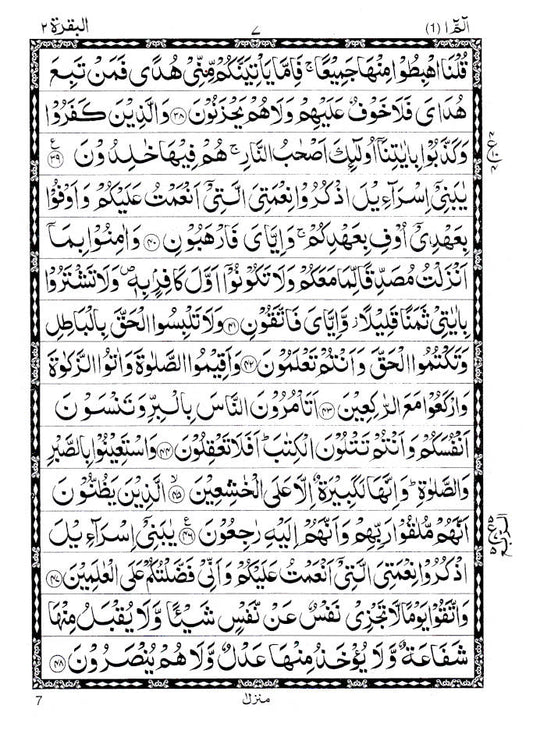 الٓمّٓ ا (١) ٧ البقرة ٢
قُلْنَا اهْبِطُوْا مِنْهَا جَمِيْعًا ۚ فَاِمَّا يَاْتِيَنَّكُمْ مِّنِّيْ هُدًى فَمَنْ تَبِعَ
هُدَايَ فَلَا خَوْفٌ عَلَيْهِمْ وَلَا هُمْ يَحْزَنُوْنَ ﴿٣٨﴾ وَالَّذِيْنَ كَفَرُوْا
وَكَذَّبُوْا بِاٰيٰتِنَاۤ اُولٰٓئِكَ اَصْحٰبُ النَّارِ ۚ هُمْ فِيْهَا خٰلِدُوْنَ ﴿٣٩﴾ ع
يٰبَنِيْۤ اِسْرَآءِيْلَ اذْكُرُوْا نِعْمَتِيَ الَّتِيْۤ اَنْعَمْتُ عَلَيْكُمْ وَاَوْفُوْا
بِعَهْدِيْۤ اُوْفِ بِعَهْدِكُمْ ۚ وَاِيَّايَ فَارْهَبُوْنِ ﴿٤٠﴾ وَاٰمِنُوْا بِمَاۤ
اَنْزَلْتُ مُصَدِّقًا لِّمَا مَعَكُمْ وَلَا تَكُوْنُوْۤا اَوَّلَ كَافِرٍۭ بِهٖ ۪ وَلَا تَشْتَرُوْا
بِاٰيٰتِيْ ثَمَنًا قَلِيْلًا ز وَّاِيَّايَ فَاتَّقُوْنِ ﴿٤١﴾ وَلَا تَلْبِسُوا الْحَقَّ بِالْبَاطِلِ
وَتَكْتُمُوا الْحَقَّ وَاَنْتُمْ تَعْلَمُوْنَ ﴿٤٢﴾ وَاَقِيْمُوا الصَّلٰوةَ وَاٰتُوا الزَّكٰوةَ
وَارْكَعُوْا مَعَ الرّٰكِعِيْنَ ﴿٤٣﴾ اَتَاْمُرُوْنَ النَّاسَ بِالْبِرِّ وَتَنْسَوْنَ
اَنْفُسَكُمْ وَاَنْتُمْ تَتْلُوْنَ الْكِتٰبَ ؕ اَفَلَا تَعْقِلُوْنَ ﴿٤٤﴾ وَاسْتَعِيْنُوْا بِالصَّبْرِ
وَالصَّلٰوةِ ؕ وَاِنَّهَا لَكَبِيْرَةٌ اِلَّا عَلَى الْخٰشِعِيْنَ ﴿٤٥﴾ۙ الَّذِيْنَ يَظُنُّوْنَ
اَنَّهُمْ مُّلٰقُوْا رَبِّهِمْ وَاَنَّهُمْ اِلَيْهِ رٰجِعُوْنَ ﴿٤٦﴾ ع يٰبَنِيْۤ اِسْرَآءِيْلَ
اذْكُرُوْا نِعْمَتِيَ الَّتِيْۤ اَنْعَمْتُ عَلَيْكُمْ وَاَنِّيْ فَضَّلْتُكُمْ عَلَى الْعٰلَمِيْنَ ﴿٤٧﴾
وَاتَّقُوْا يَوْمًا لَّا تَجْزِيْ نَفْسٌ عَنْ نَّفْسٍ شَيْـًٔا وَّلَا يُقْبَلُ مِنْهَا
شَفَاعَةٌ وَّلَا يُؤْخَذُ مِنْهَا عَدْلٌ وَّلَا هُمْ يُنْصَرُوْنَ ﴿٤٨﴾
منزل
7